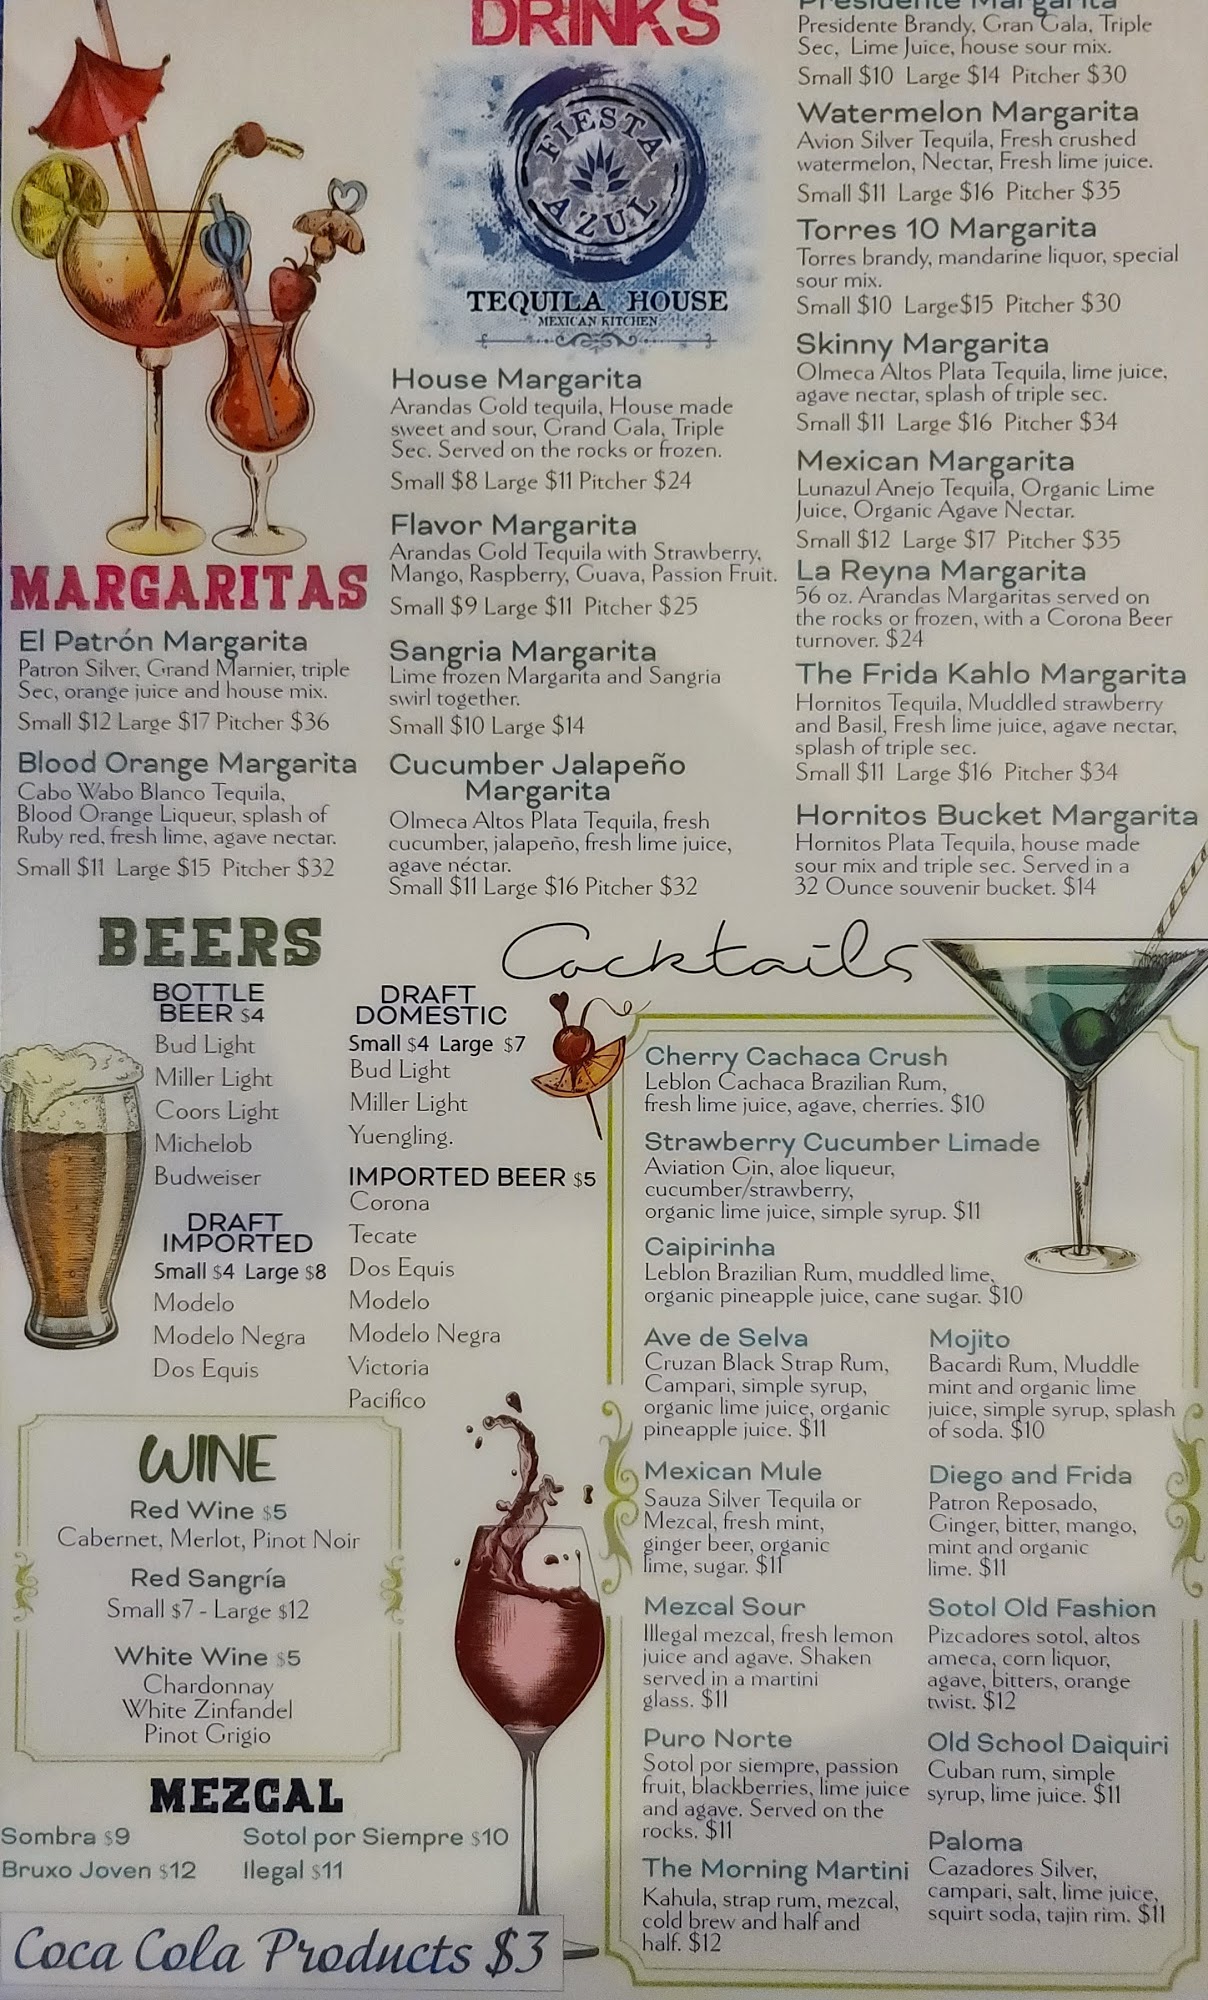 DRINKS
FIESTA
AZUL
TEQUILA HOUSE
MEXICAN KITCHEN
MARGARITAS
El Patrón Margarita
Patron Silver, Grand Marnier, triple
Sec, orange juice and house mix.
Small $12 Large $17 Pitcher $36
Blood Orange Margarita
Cabo Wabo Blanco Tequila,
Blood Orange Liqueur, splash of
Ruby red, fresh lime, agave nectar.
Small $11 Large $15 Pitcher $32
House Margarita
Arandas Gold tequila, House made
sweet and sour, Grand Gala, Triple
Sec. Served on the rocks or frozen.
Small $8 Large $11 Pitcher $24
Flavor Margarita
Arandas Gold Tequila with Strawberry,
Mango, Raspberry, Guava, Passion Fruit.
Small $9 Large $11 Pitcher $25
Sangria Margarita
Lime frozen Margarita and Sangria
swirl together.
Small $10 Large $14
Cucumber Jalapeño
Margarita
Olmeca Altos Plata Tequila, fresh
cucumber, jalapeño, fresh lime juice,
agave néctar.
Small $11 Large $16 Pitcher $32
Presidente Margarita
Presidente Brandy, Gran Gala, Triple
Sec, Lime Juice, house sour mix.
Small $10 Large $14 Pitcher $30
Watermelon Margarita
Avion Silver Tequila, Fresh crushed
watermelon, Nectar, Fresh lime juice.
Small $11 Large $16 Pitcher $35
Torres 10 Margarita
Torres brandy, mandarine liquor, special
sour mix.
Small $10 Large$15 Pitcher $30
Skinny Margarita
Olmeca Altos Plata Tequila, lime juice,
agave nectar, splash of triple sec.
Small $11 Large $16 Pitcher $34
Mexican Margarita
Lunazul Anejo Tequila, Organic Lime
Juice, Organic Agave Nectar.
Small $12 Large $17 Pitcher $35
La Reyna Margarita
56 oz. Arandas Margaritas served on
the rocks or frozen, with a Corona Beer
turnover. $24
The Frida Kahlo Margarita
Hornitos Tequila, Muddled strawberry
and Basil, Fresh lime juice, agave nectar,
splash of triple sec.
Small $11 Large $16 Pitcher $34
Hornitos Bucket Margarita
Hornitos Plata Tequila, house made
sour mix and triple sec. Served in a
32 Ounce souvenir bucket. $14
BEERS
BOTTLE
BEER $4
Bud Light
Miller Light
Coors Light
Michelob
Budweiser
DRAFT
IMPORTED
Small $4 Large $8
Modelo
Modelo Negra
Dos Equis
DRAFT
DOMESTIC
Small $4 Large $7
Bud Light
Miller Light
Yuengling.
IMPORTED BEER $5
Corona
Tecate
Dos Equis
Modelo
Modelo Negra
Victoria
Pacifico
WINE
Red Wine $5
Cabernet, Merlot, Pinot Noir
Red Sangría
Small $7 - Large $12
White Wine $5
Chardonnay
White Zinfandel
Pinot Grigio
MEZCAL
Sombra $9
Sotol por Siempre $10
Bruxo Joven $12
Ilegal $11
Coca Cola Products $3
Cocktails
Cherry Cachaca Crush
Leblon Cachaca Brazilian Rum,
fresh lime juice, agave, cherries. $10
Strawberry Cucumber Limade
Aviation Gin, aloe liqueur,
cucumber/strawberry,
organic lime juice, simple syrup. $11
Caipirinha
Leblon Brazilian Rum, muddled lime,
organic pineapple juice, cane sugar. $10
Ave de Selva
Cruzan Black Strap Rum,
Campari, simple syrup,
organic lime juice, organic
pineapple juice. $11
Mexican Mule
Sauza Silver Tequila or
Mezcal, fresh mint,
ginger beer, organic
lime, sugar. $11
Mezcal Sour
Illegal mezcal, fresh lemon
juice and agave. Shaken
served in a martini
glass. $11
Puro Norte
Sotol por siempre, passion
fruit, blackberries, lime juice
and agave. Served on the
rocks. $11
The Morning Martini
Kahula, strap rum, mezcal,
cold brew and half and
half. $12
Mojito
Bacardi Rum, Muddle
mint and organic lime
juice, simple syrup, splash
of soda. $10
Diego and Frida
Patron Reposado,
Ginger, bitter, mango,
mint and organic
lime. $11
Sotol Old Fashion
Pizcadores sotol, altos
ameca, corn liquor,
agave, bitters, orange
twist. $12
Old School Daiquiri
Cuban rum, simple
syrup, lime juice. $11
Paloma
Cazadores Silver,
campari, salt, lime juice,
squirt soda, tajin rim. $11